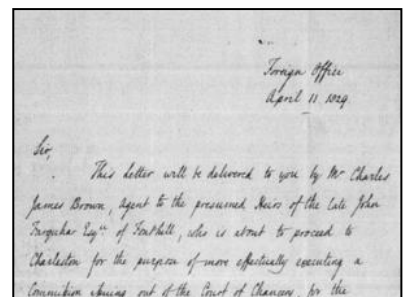 Foreign Office
April 11 1829
Sir,
This Letter will be delivered to you by Mr Charles
James Brown, Agent to the presumed Heirs of the late John
Farquhar Esqre of Fonthill, who is about to proceed to
Charleston for the purpose of more effectually executing a
Commission issuing out of the Court of Chancery, for the